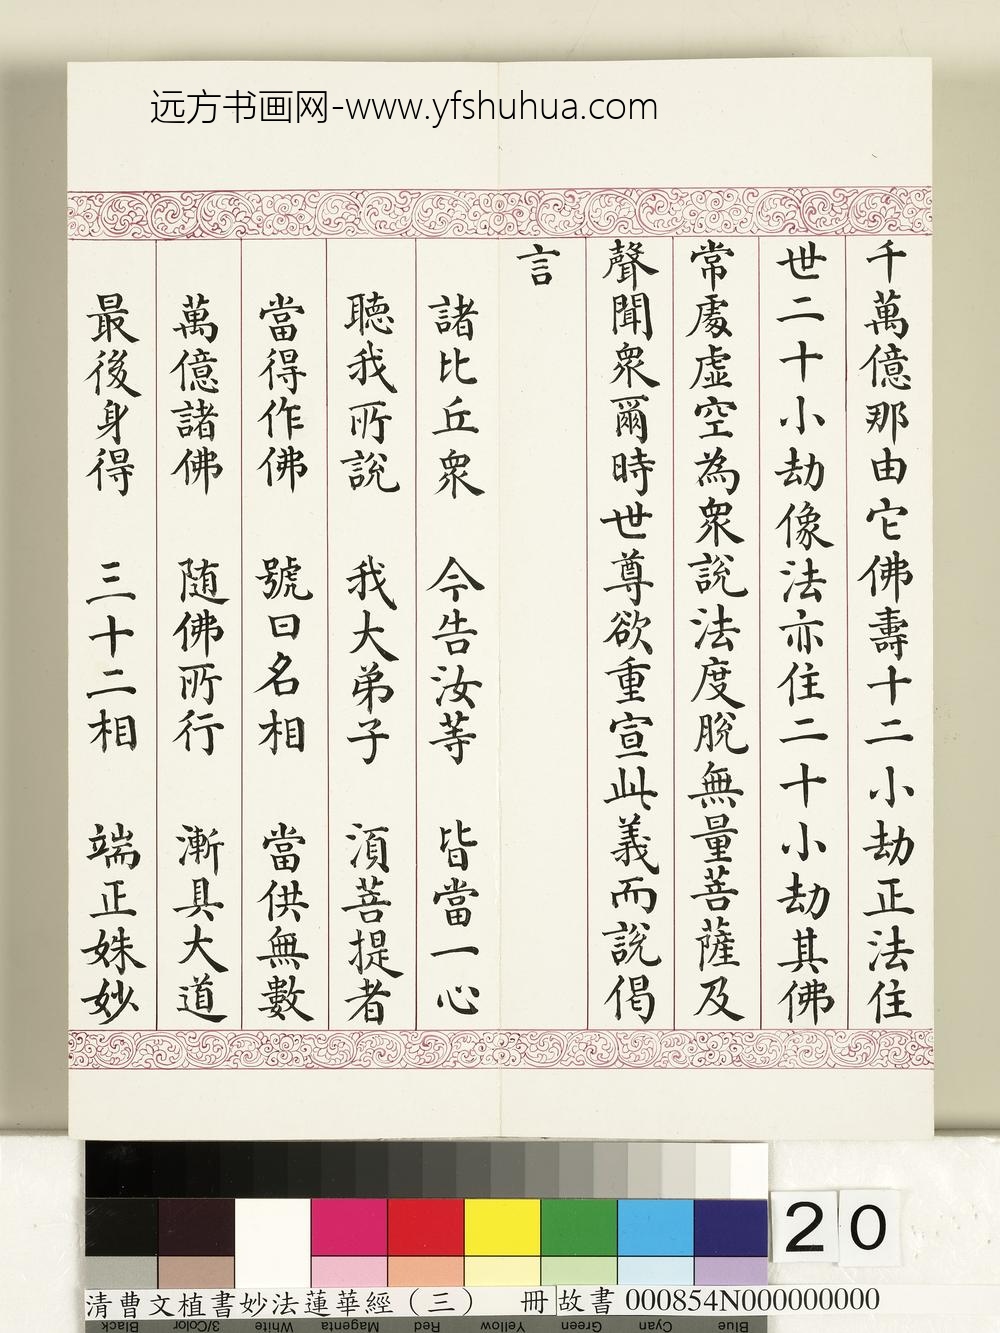 远方书画网-www.yfshuhua.com
千萬億那由它佛壽十二小劫正法住
世二十小劫像法亦住二十小劫其佛
常處虛空為眾說法度脫無量菩薩及
聲聞眾爾時世尊欲重宣此義而說偈
言
諸比丘眾 今告汝等 皆當一心
聽我所說 我大弟子 須菩提者
當得作佛 號曰名相 當供無數
萬億諸佛 随佛所行 漸具大道
最後身得 三十二相 端正姝妙
20
清曹文植書妙法蓮華經（三） 冊 故書 000854N000000000
Black 3/Color White Magenta Red Yellow Green Cyan Blue